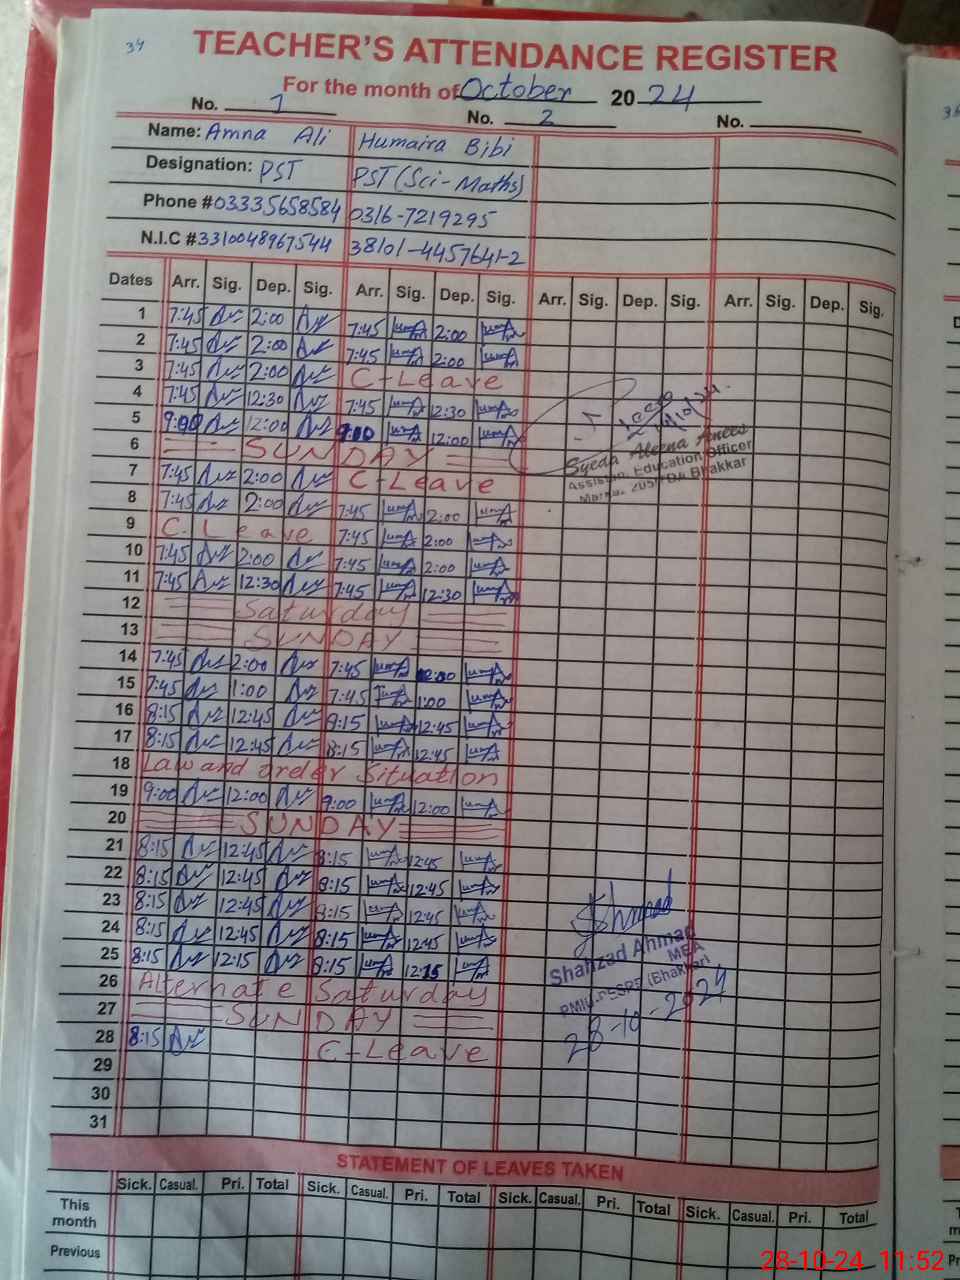 34
TEACHER'S ATTENDANCE REGISTER
For the month of October 2024
No. 1 No. 2 No.
Name: Amna Ali Humaira Bibi
Designation: PST PST (Sci-Maths)
Phone #03335658584 0316-7219295
N.I.C #3310048967544 38101-4457641-2
Dates Arr. Sig. Dep. Sig. Arr. Sig. Dep. Sig. Arr. Sig. Dep. Sig. Arr. Sig. Dep. Sig.
1 7:45 2:00 7:45 2:00
2 7:45 2:00 7:45 2:00
3 7:45 2:00 C-Leave
4 7:45 12:30 7:45 12:30
5 9:00 12:00 9:00 12:00
6 SUNDAY
7 7:45 2:00 C-Leave
8 7:45 2:00 7:45 2:00
9 C-Leave 7:45 2:00
10 7:45 2:00 7:45 2:00
11 7:45 12:30 7:45 12:30
12 Saturday
13 SUNDAY
14 7:45 2:00 7:45 2:00
15 7:45 1:00 7:45 1:00
16 8:15 12:45 8:15 12:45
17 8:15 12:45 8:15 12:45
18 Law and order Situation
19 9:00 12:00 9:00 12:00
20 SUNDAY
21 8:15 12:45 8:15 12:45
22 8:15 12:45 8:15 12:45
23 8:15 12:45 8:15 12:45
24 8:15 12:45 8:15 12:45
25 8:15 12:15 8:15 12:15
26 Alternate Saturday
27 SUNDAY
28 8:15 C-Leave
29
30
31
Syeda Aleena Anees
Assistant Education Officer
Bhakkar
Shahzad Ahmad
MEA
(Bhakkar)
28-10-2024
STATEMENT OF LEAVES TAKEN
Sick. Casual. Pri. Total Sick. Casual. Pri. Total Sick. Casual. Pri. Total Sick. Casual. Pri. Total
This month
Previous
28-10-24 11:52